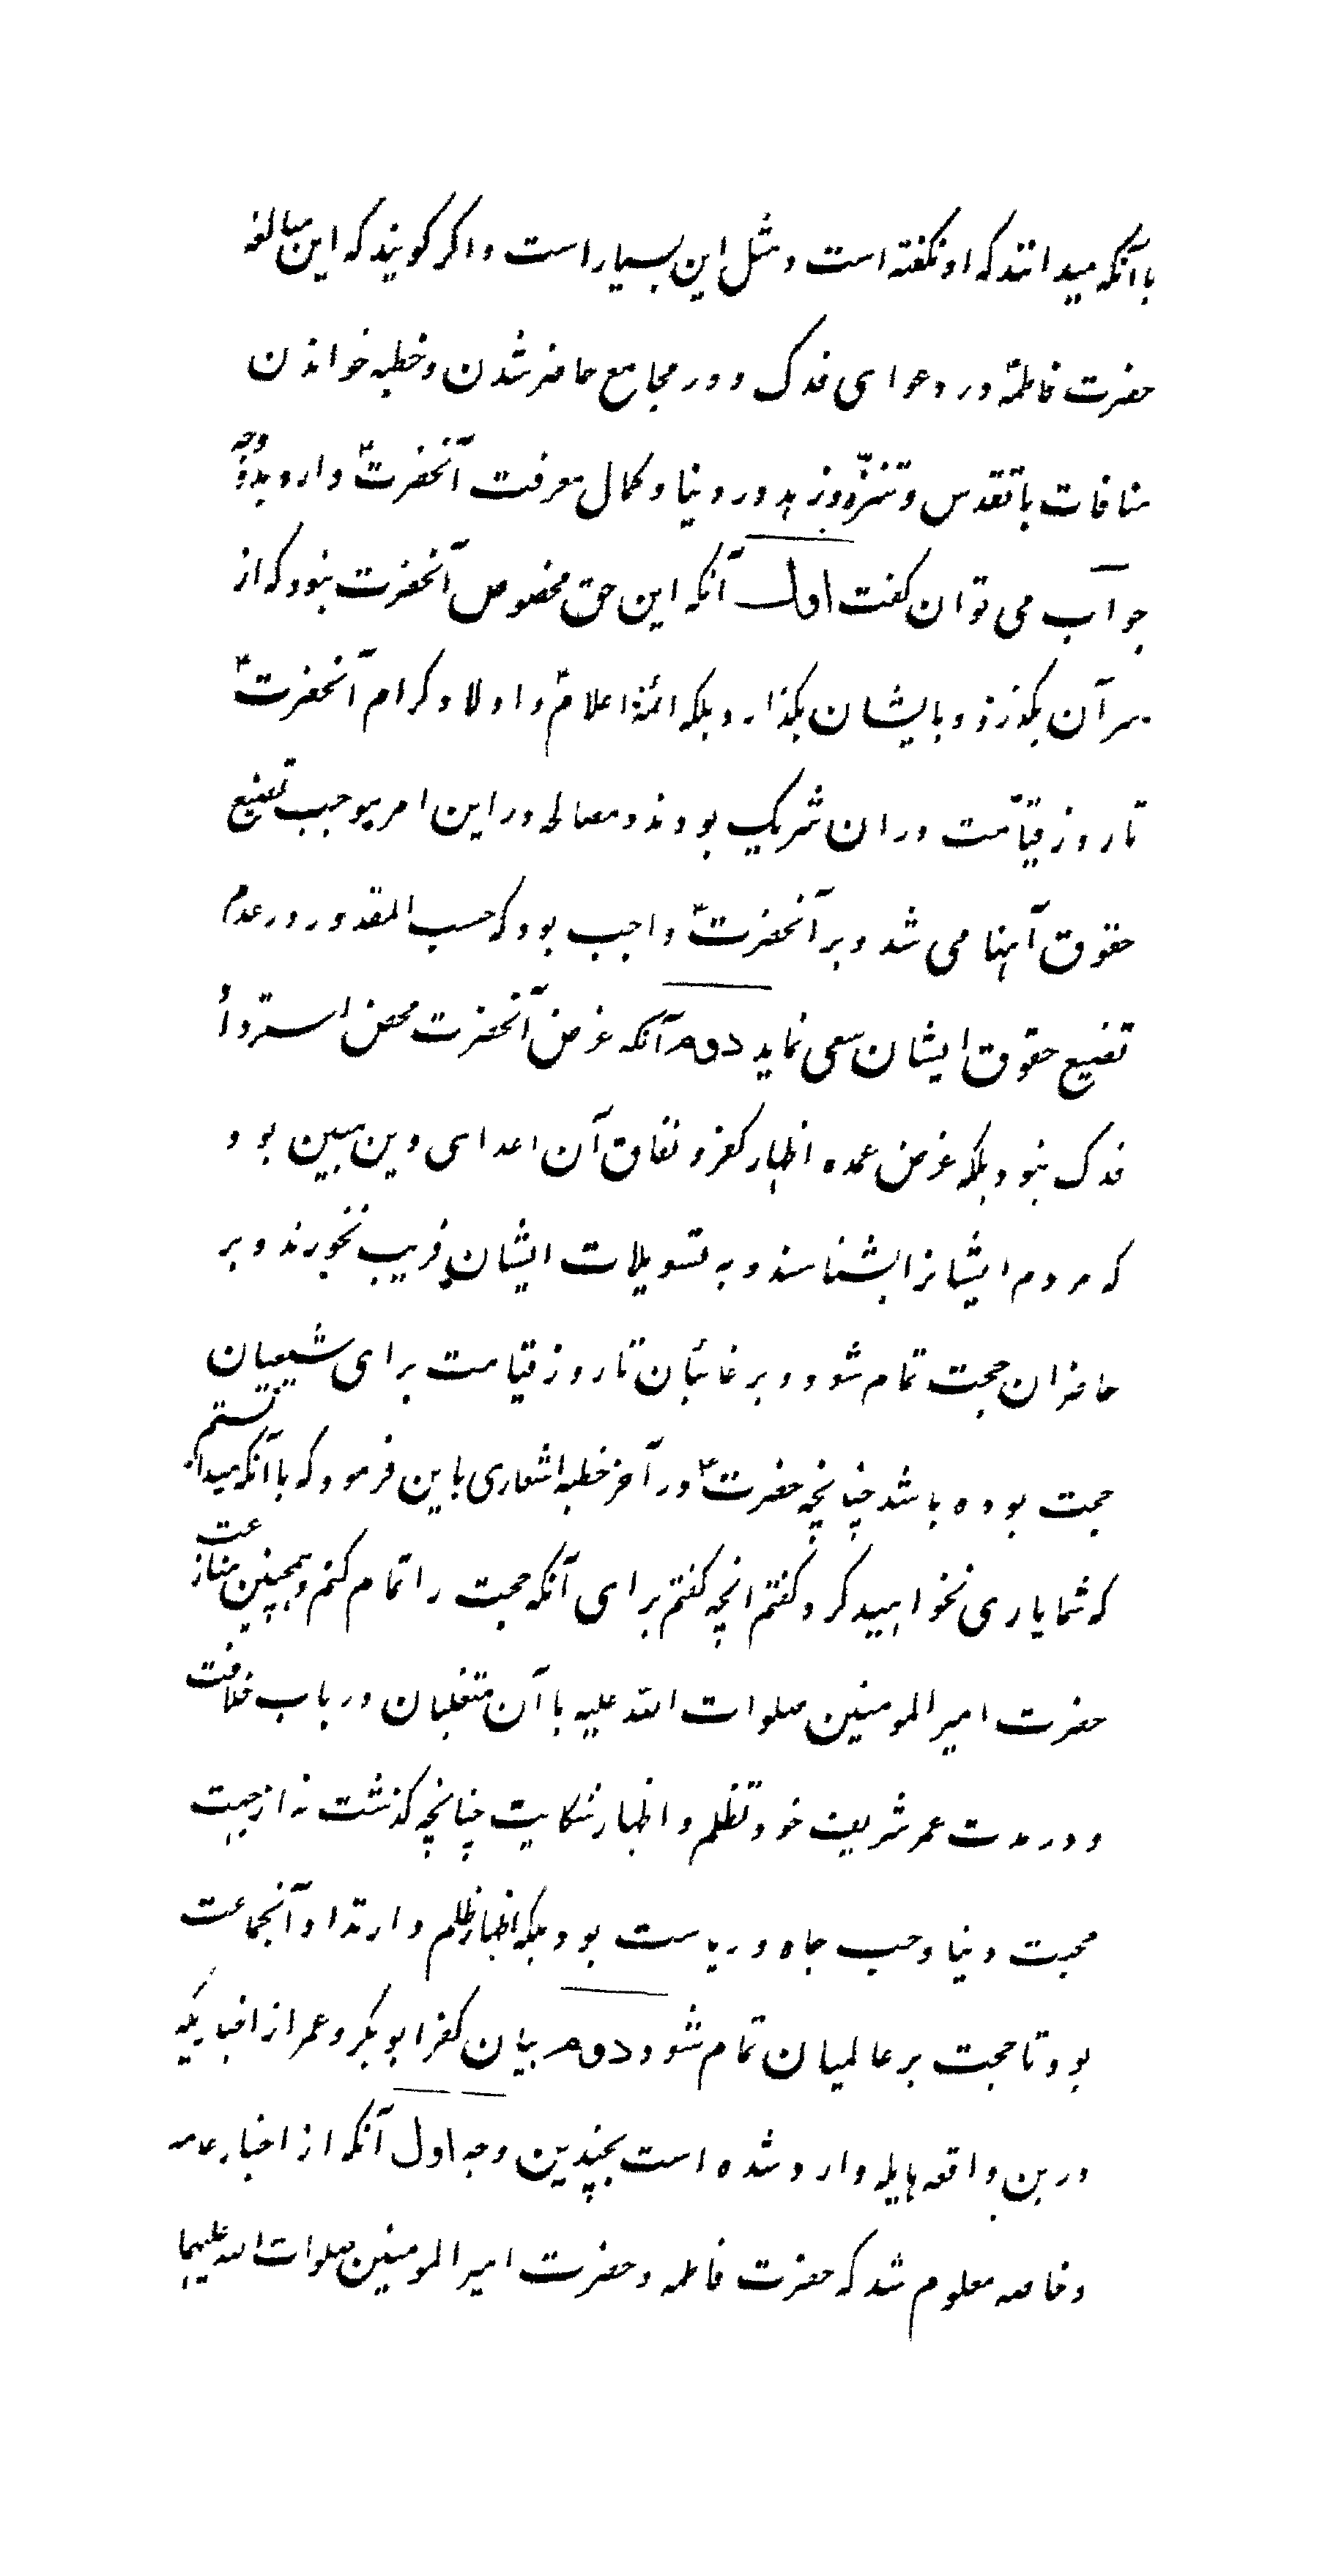 با آنکه میدانند که او نکفته است و مثل این بسیار است و اکر کویند که این مبالغه
حضرت فاطمهؑ در دعوای فدک و در مجامع حاضر شدن و خطبه خواندن
منافات با تقدس و تنزّه و زهد در دنیا و کمال معرفت آنحضرتؑ دارد بدو وجه
جواب می توان کفت اول آنکه این حق مخصوص آنحضرت نبود که از
سر آن بکذرد و بایشان بکذارد بلکه ائمهٔ اعلامؑ و اولاد کرام آنحضرتؑ
تا روز قیامت در ان شریک بودند و مصالحه در این امر موجب تضییع
حقوق آنها می شد و بر آنحضرتؑ واجب بود که حسب المقدور در عدم
تضییع حقوق ایشان سعی نماید دوم آنکه غرض آنحضرت محض استرداد
فدک نبود بلکه غرض عمده اظهار کفر و نفاق آن اعدای دین مبین بود
که مردم ایشانرا بشناسند و به تسویلات ایشان فریب نخورند و بر
حاضران حجت تمام شود و بر غائبان تا روز قیامت برای شیعیان
حجت بوده باشد چنانچه حضرتؑ در آخر خطبه اشعاری باین فرمود که با آنکه میدانستم
که شما یاری نخواهید کرد کفتم انچه کفتم برای آنکه حجت را تمام کنم و همچنین منازعت
حضرت امیر المومنین صلوات الله علیه با آن متغلبان در باب خلافت
و در مدت عمر شریف خود تظلم و اظهار شکایت چنانچه کذشت نه از جهت
محبت دنیا و حب جاه و ریاست بود بلکه اظهار ظلم و ارتداد آنجماعت
بود تا حجت بر عالمیان تمام شود دوم بیان کفر ابو بکر و عمر از اخباریکه
درین واقعه هایله وارد شده است بچندین وجه اول آنکه از اخبار عامه
و خاصه معلوم شد که حضرت فاطمه و حضرت امیر المومنین صلوات الله علیهما